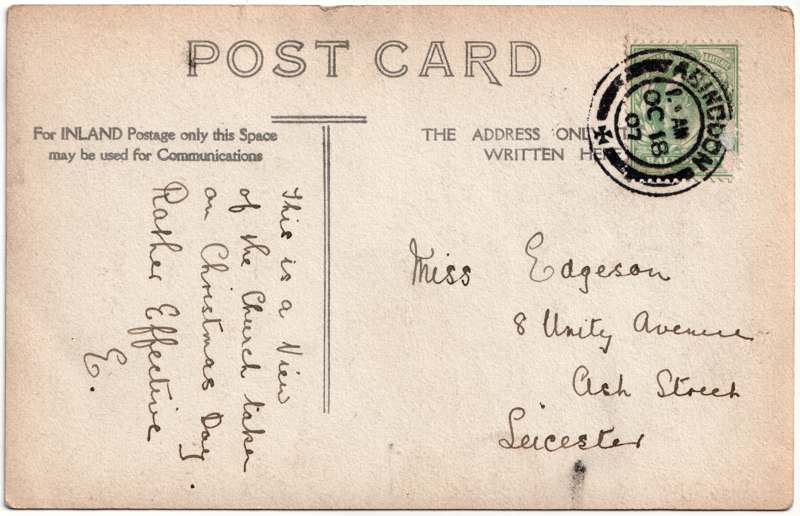 POST CARD
For INLAND Postage only this Space
may be used for Communications
THE ADDRESS ONLY
WRITTEN HERE
ABINGDON
AM
OC 18
07
This is a View
of the Church taken
on Christmas Day.
Rather Effective
E.
Miss Edgeson
8 Unity Avenue
Ash Street
Leicester